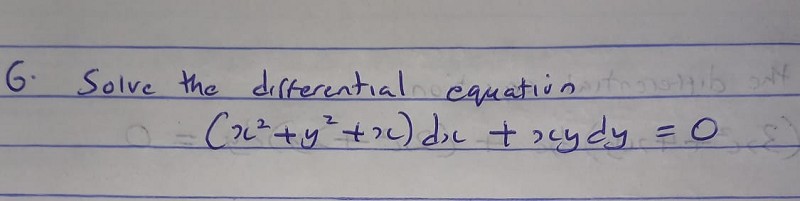 6. Solve the differential equation
(x² + y² + x) dx + xy dy = 0